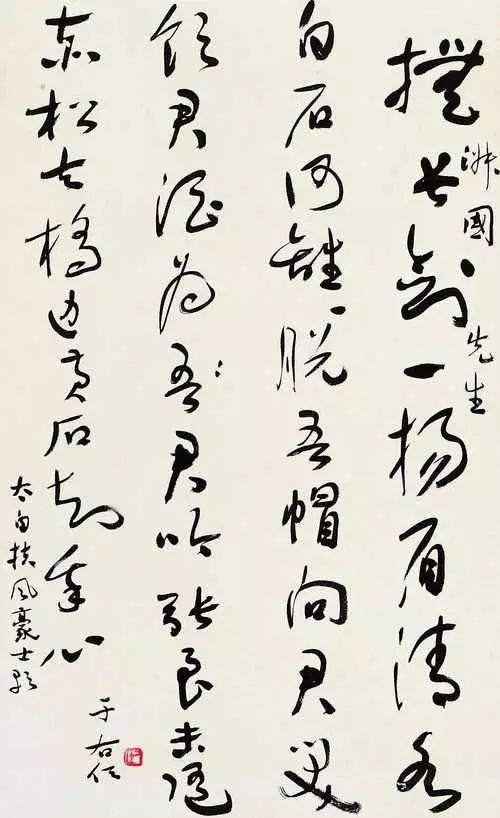 撫長劍一揚眉清水
國先生
白石何離〻脫吾帽向君笑
飲君酒為吾君吟張良未逐
赤松去橋邊黃石知我心
太白扶風豪士歌
于右任